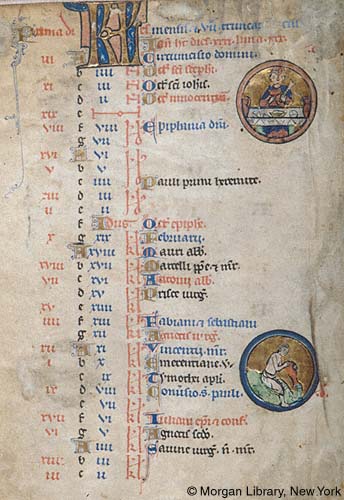 Prima di KL mensis et vii truncat
Ian hr dies xxxi luna xxx
iii Circumcisio domini.
b iiii Oct sci stephi
xi c iii Oct s iohis.
d ii Oct innocentum.
xix e
viii f viii Epiphania dni.
g vii
xvi vi
v b v
c iiii
xiii d iii Pauli primi heremite.
ii e ii
f Idus Oct epiphie.
x g xix Februarii.
xviii Mauri abb.
xviii b xvii Marcelli ppe et mr.
vii c xvi Antonii abb.
d xv Prisce virg.
xv e xiiii
iiii f xiii Fabiani et sebastiani
g xii Agnetis virg.
xii xi Vincentii mr.
i b x Emerentiane v.
c ix Tymothei apli.
ix d viii Conversio s. pauli.
e vii
xvii f vi Iuliani epi et conf.
vi g v Agnetis scdo.
iiii Savine virg. n mr.
xiiii b iii
iii c ii
© Morgan Library, New York